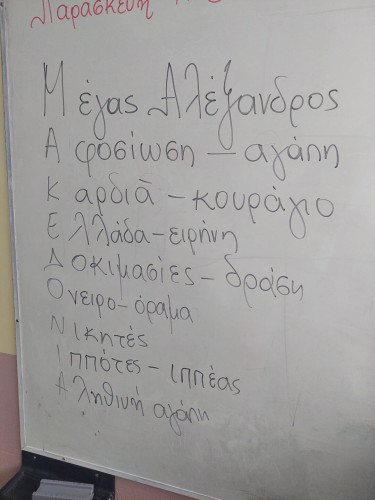 Παρασκευή
Μέγας Αλέξανδρος
Αφοσίωση – αγάπη
Καρδιά – κουράγιο
Ελλάδα – ειρήνη
Δοκιμασίες – δράση
Όνειρο – όραμα
Νικητές
Ιππότες – ιππέας
Αληθινή αγάπη